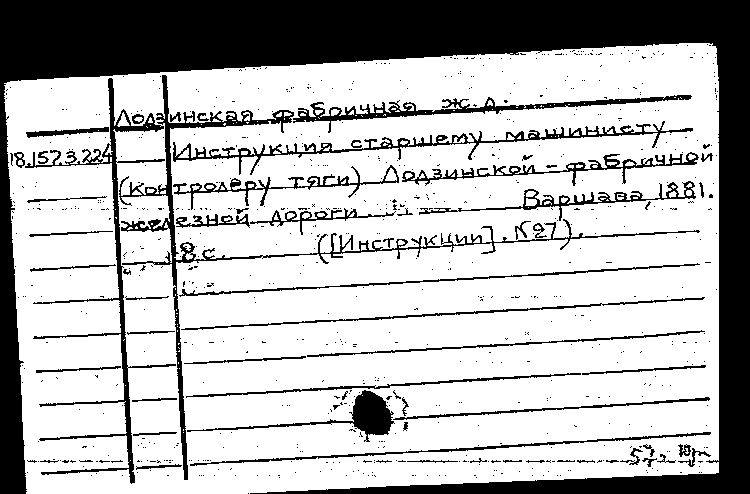 Лодзинская фабричная ж.д.
18.157.3.224 Инструкция старшему машинисту
(контролеру тяги) Лодзинской-фабричной
железной дороги Варшава, 1881.
8 с. ([Инструкции]. №27).